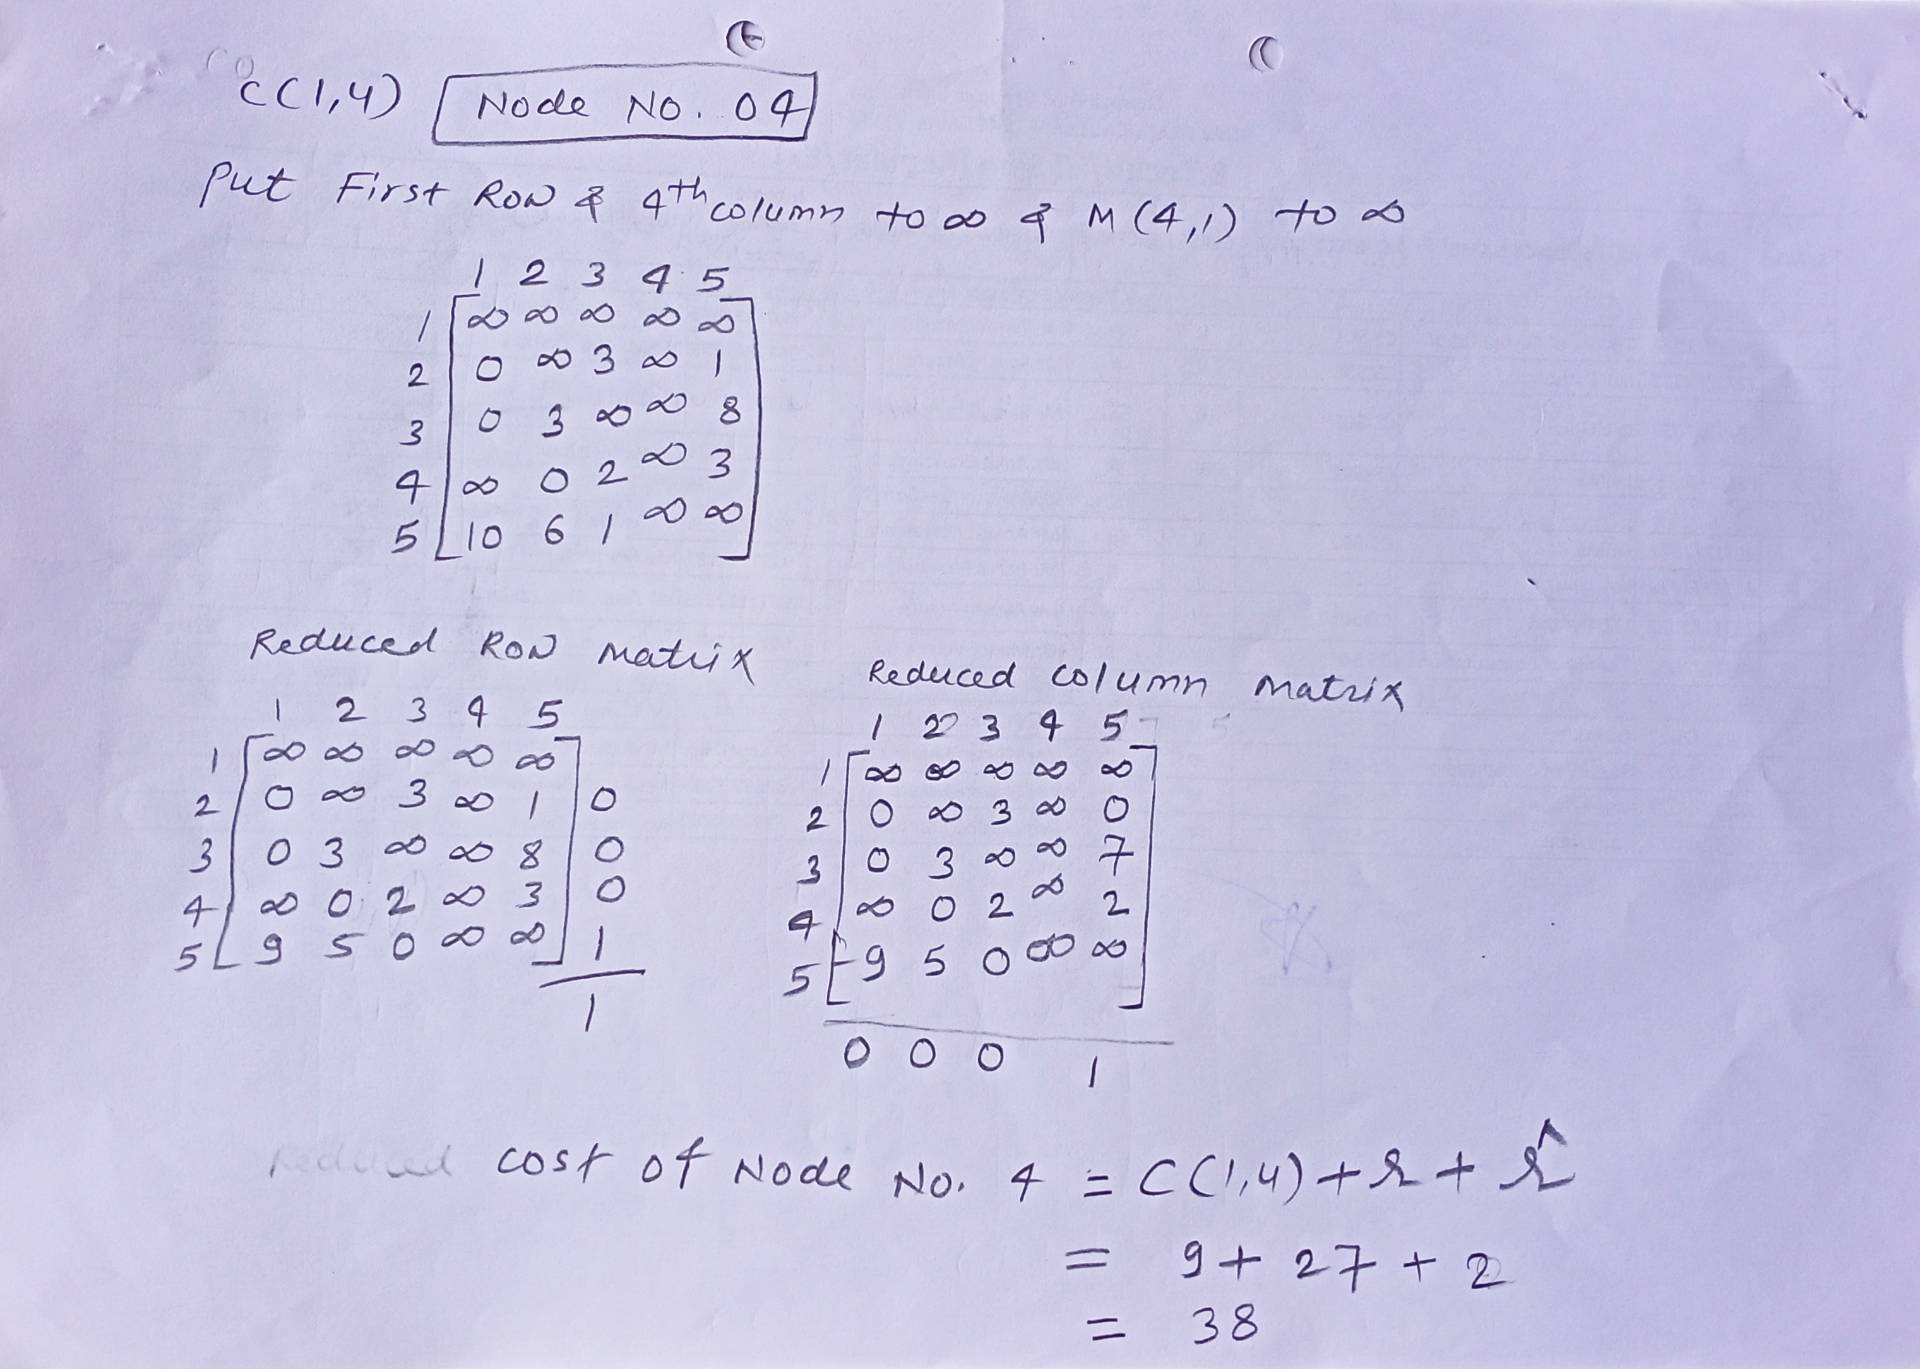 C(1,4) Node No. 04
Put First Row & 4th column to ∞ & M(4,1) to ∞
1 2 3 4 5
1 ∞ ∞ ∞ ∞ ∞
2 0 ∞ 3 ∞ 1
3 0 3 ∞ ∞ 8
4 ∞ 0 2 ∞ 3
5 10 6 1 ∞ ∞
Reduced Row matrix
1 2 3 4 5
1 ∞ ∞ ∞ ∞ ∞
2 0 ∞ 3 ∞ 1 0
3 0 3 ∞ ∞ 8 0
4 ∞ 0 2 ∞ 3 0
5 9 5 0 ∞ ∞ 1
1
Reduced column matrix
1 2 3 4 5
1 ∞ ∞ ∞ ∞ ∞
2 0 ∞ 3 ∞ 0
3 0 3 ∞ ∞ 7
4 ∞ 0 2 ∞ 2
5 9 5 0 ∞ ∞
0 0 0 1
Reduced cost of Node No. 4 = C(1,4) + r + r̂
= 9 + 27 + 2
= 38